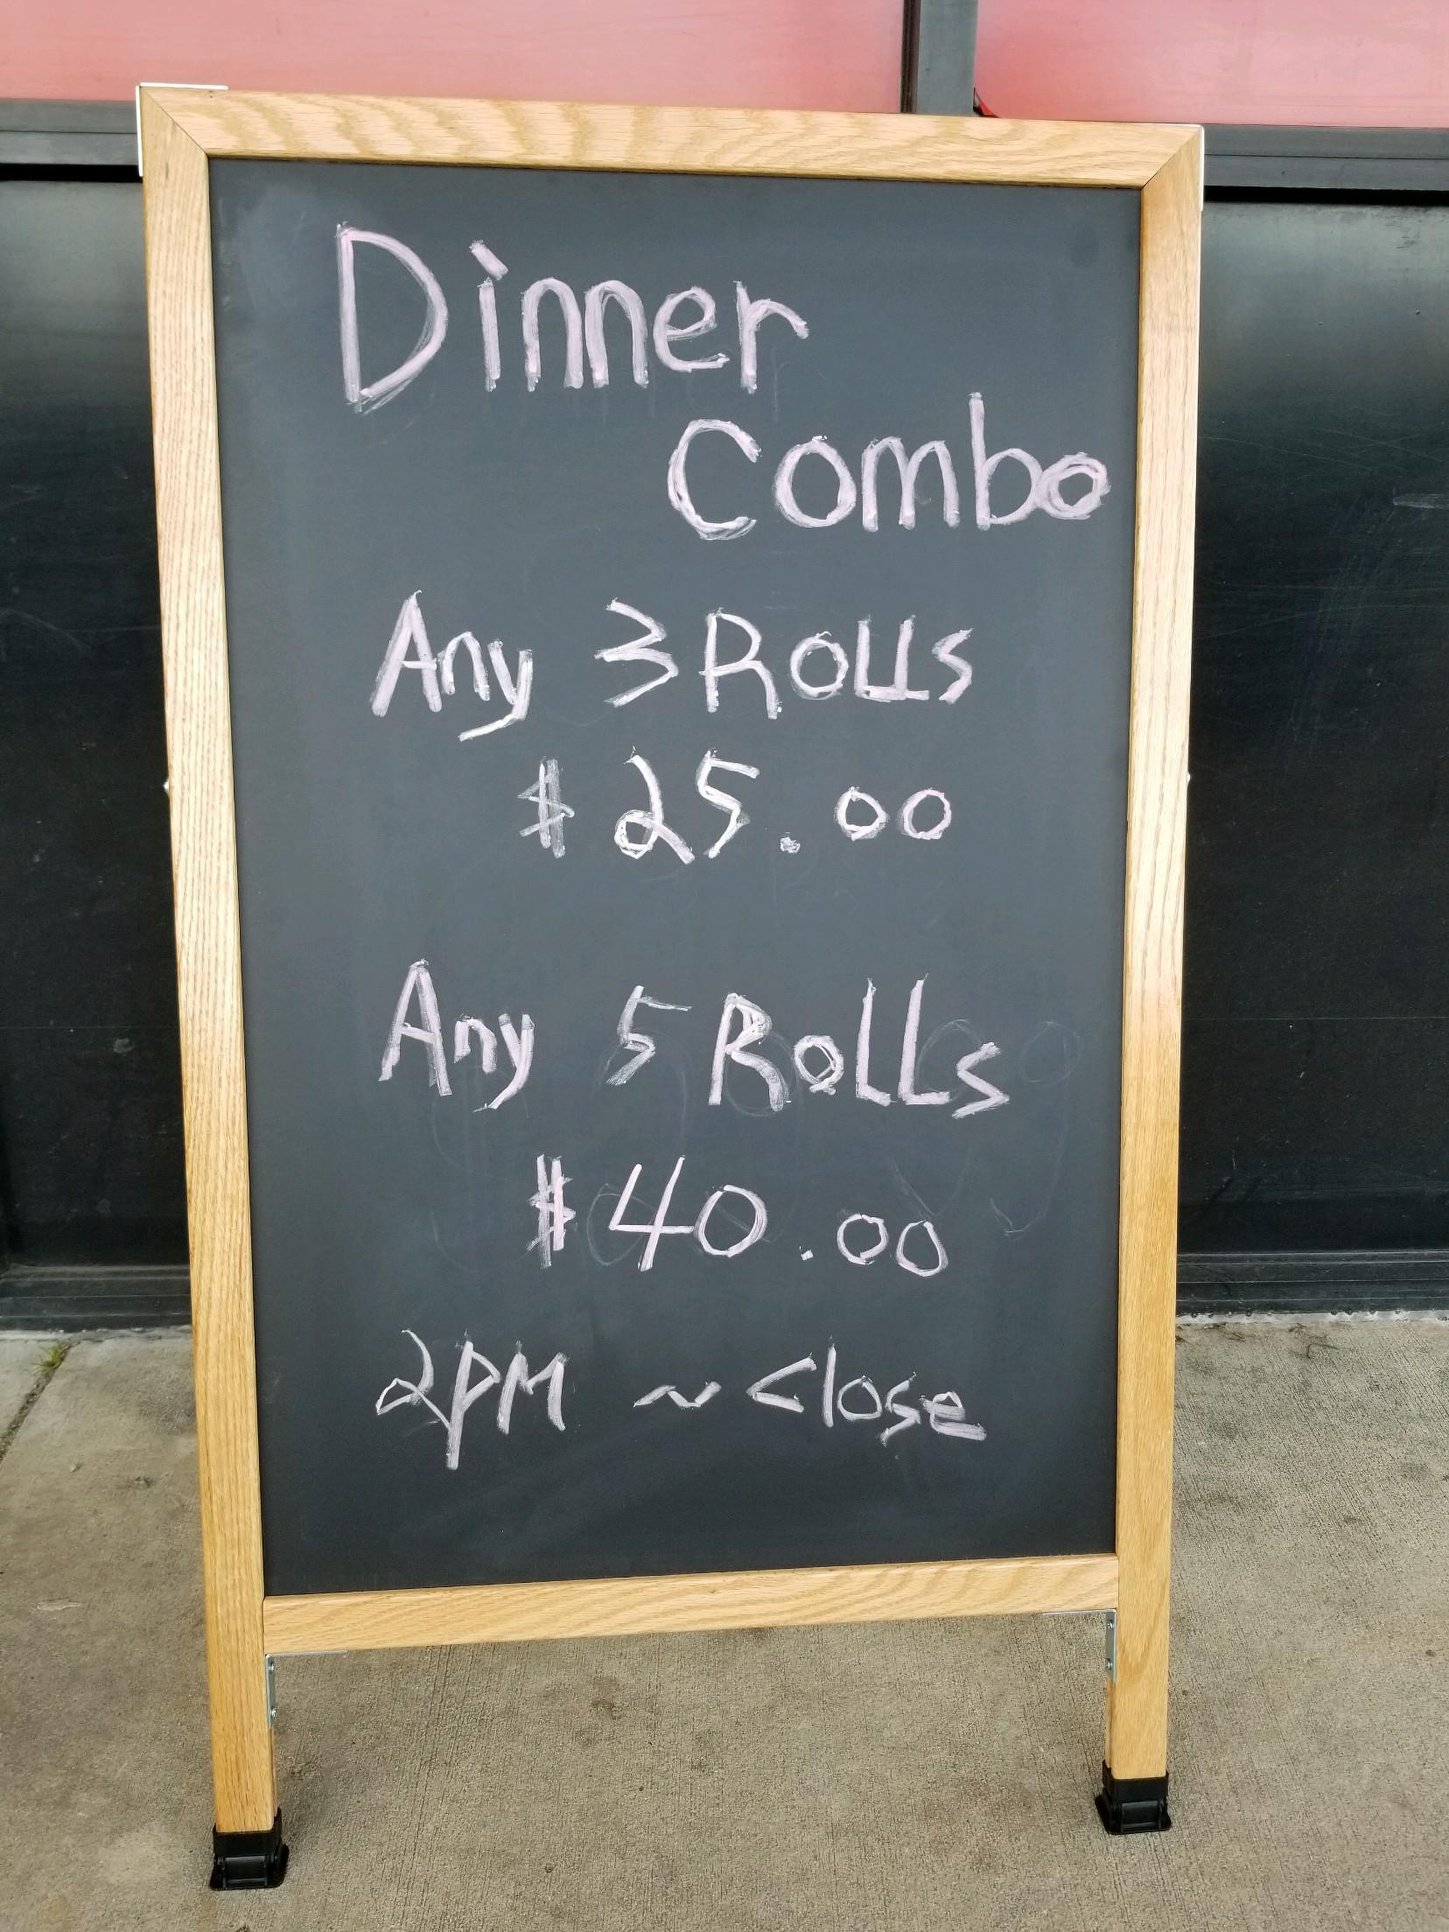 Dinner
Combo
Any 3 Rolls
$25.00
Any 5 Rolls
$40.00
2PM ~ Close